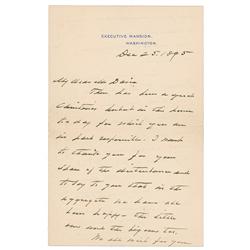 EXECUTIVE MANSION,
WASHINGTON.
Dec 25. 1895
My dear Mr Davis
There has been a great
Christmas debut in this house
to day for which you are
in part responsible. I want
to thank you for your
share of the
and
to say to you that in the
aggregate we have all
been happy – the little
ones and the big ones too.
We all wish for you